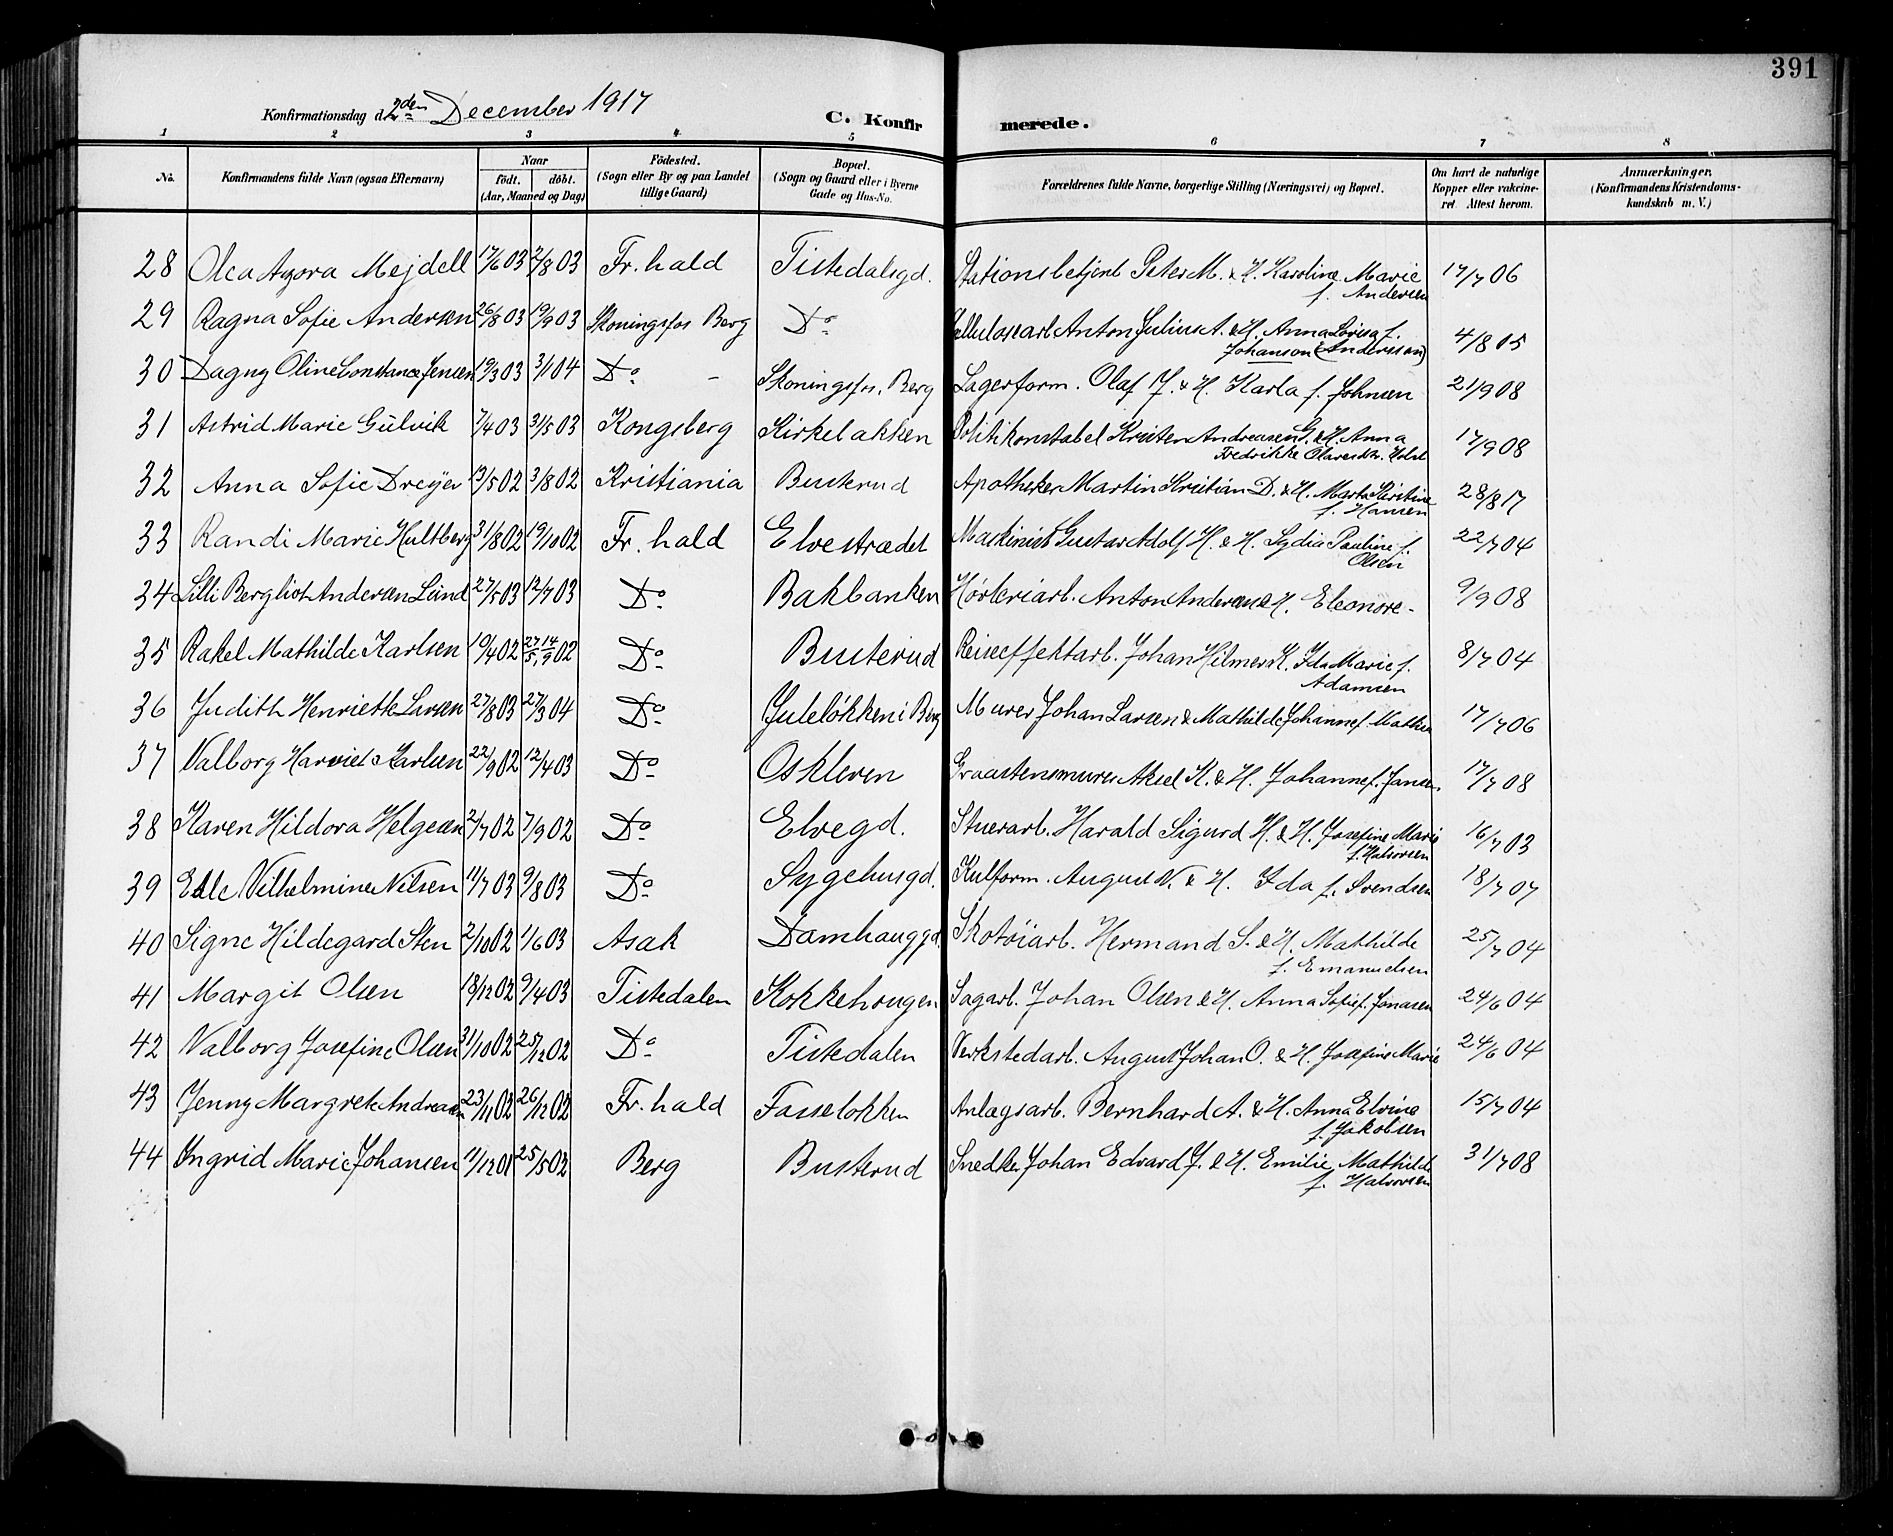 391
Konfirmationsdag d. 2den December 1917
C. Konfirmerede.
1 2 3 4 5 6 7 8
No. Konfirmandens fulde Navn (ogsaa Efternavn) Naar födt. döbt. (Aar, Maaned og Dag) Födested. (Sogn eller By og paa Landet tillige Gaard) Bopæl. (Sogn og Gaard eller i Byerne Gade og Hus-No. Forældrenes fulde Navne, borgerlige Stilling (Næringsvei) og Bopæl. Om havt de naturlige Kopper eller vakcineret Attest herom. Anmærkninger. (Konfirmandens Kristendomskundskab m. V.)
28 Mejdell 17/6 03 2/8 03 Fr.hald Tistedalsgd. Stationsbetjent Peter M. & H. Karoline Marie f. Andersen 17/7 06
29 Ragna Sofie Andersen 26/8 03 19/9 03 Skoningsfos Berg Do Cellulosearb. Anton Julius A. & H. Anna Lovisa f. Johanson (Anderssan) 4/8 05
30 Dagny Oline Constance Jensen 19/3 03 3/1 04 Do - Skoningsfos, Berg Lagerform. Olaf J. & H. Karla f. Johnsen 21/9 08
31 Astrid Marie Gulvik 7/4 03 31/5 03 Kongsberg Kirkebakken Politikonstabel Kristen Andreasen G. & H. Anna Fredrikke Olavesdtr. Holst 17/9 08
32 Anna Sofie Dreyer 13/5 02 3/8 02 Kristiania Busterud Apotheker Martin Kristian D. & H. Marta Kirstine f. Hansen 28/8 17
33 Randi Marie Hultberg 31/8 02 19/10 02 Fr. hald Elvestrædet Maskinist Gustav Adolf H. & H. Lydia Pauline f. Olsen 22/7 04
34 Lilli Bergliot Andersen Lund 27/5 03 12/7 03 Do Bakbanken Høvleriarb. Anton Andersen & H. Eleonore - 9/9 08
35 Rakel Mathilde Karlsen 19/4 02 27/5, 14/9 02 Do Busterud Reiseeffektarb. Johan Hilmer K. Ida Marie f. Adamsen 8/7 04
36 Judith Henriette Larsen 27/8 03 27/3 04 Do Juleløkken i Berg Murer Johan Larsen & Mathilde Johanne f. 17/7 06
37 Valborg Harriet Karlsen 22/9 02 12/4 03 Do Oskleven Graastensmurer Aksel K. & H. Johanne f. Jansen 17/7 08
38 Karen Hildora Helgesen 2/7 02 7/9 02 Do Elvegd. Stuerarb. Harald Sigurd H. & H. Josefine Marie f. Halvorsen 16/7 03
39 Elle Vilhelmine Nilsen 11/7 03 9/8 03 Do Sygehusgd. Kulform. August N. & H. Ida f. Svendsen 18/7 07
40 Signe Hildegard Sten 2/10 02 1/6 03 Asak Damhauggd. Skotøiarb. Hermand S. & H. Mathilde f. Emanuelsen 25/7 04
41 Margit Olsen 18/12 02 9/4 03 Tistedalen Kokkehougen Sagarb. Johan Olsen & H. Anna Sofie f. Jonasen 24/6 04
42 Valborg Josefine Olsen 31/10 02 25/12 02 Do Tistedalen Verkstedarb. August Johan O. & H. Josefine Marie 24/6 04
43 Jenny Margrete Andreasen 23/11 02 26/12 02 Fr. hald Fasseløkken Anlægsarb. Bernhard A. & H. Anna Elvine f. Jakobsen 15/7 04
44 Ingrid Marie Johansen 11/12 01 25/5 02 Berg Busterud Snedker Johan Edvard J. & H. Emilie Mathilde f. Halvorsen 31/7 08